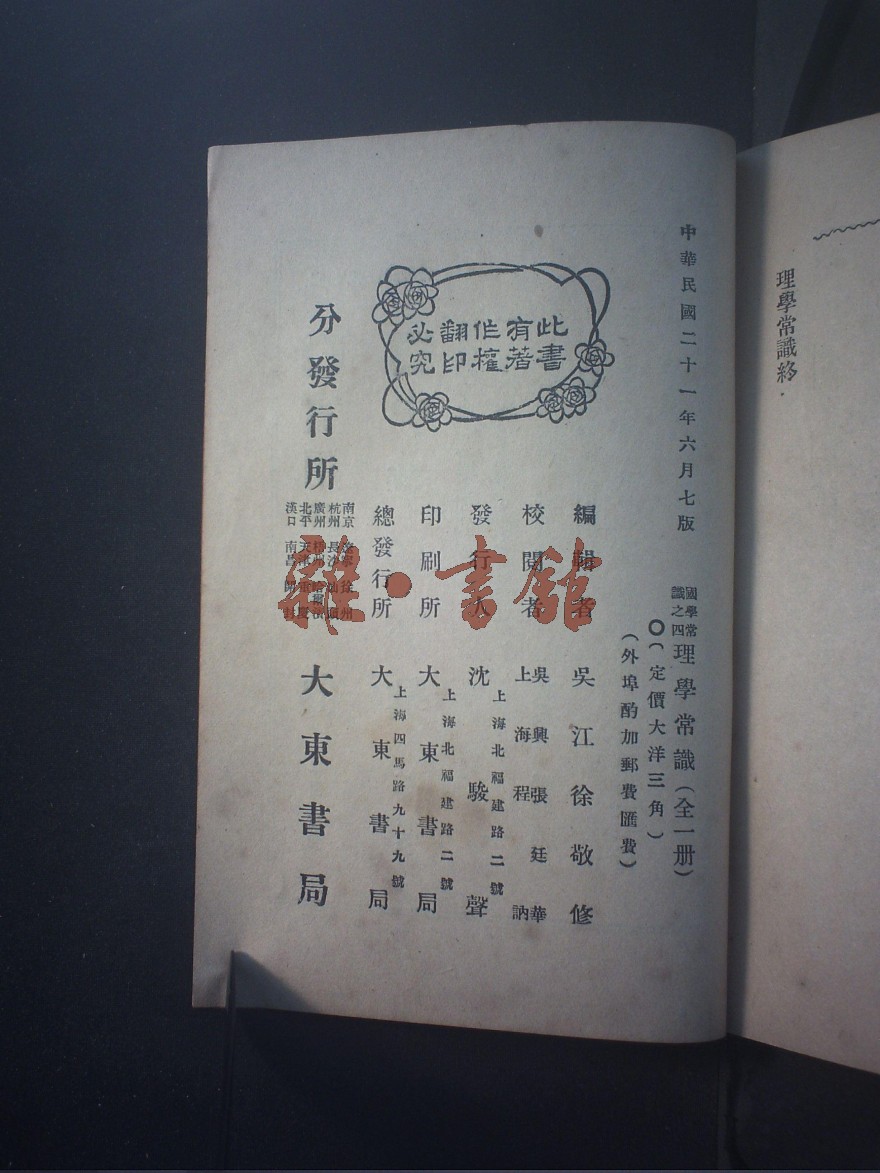 理學常識終
中華民國二十一年六月七版
國學常識之四 理學常識(全一册)
〇(定價大洋三角)
(外埠酌加郵費匯費)
此書有著作權翻印必究
編輯者 吳江徐敬修
校閱者 吳興張廷華
上海程訥
發行人 沈駿聲
上海北福建路二號
印刷所 大東書局
上海北福建路二號
總發行所 大東書局
上海四馬路九十九號
分發行所 大東書局
南京 徐州
杭州 長沙
廣州 梧州
北平 天津
漢口 南昌
雜·書館